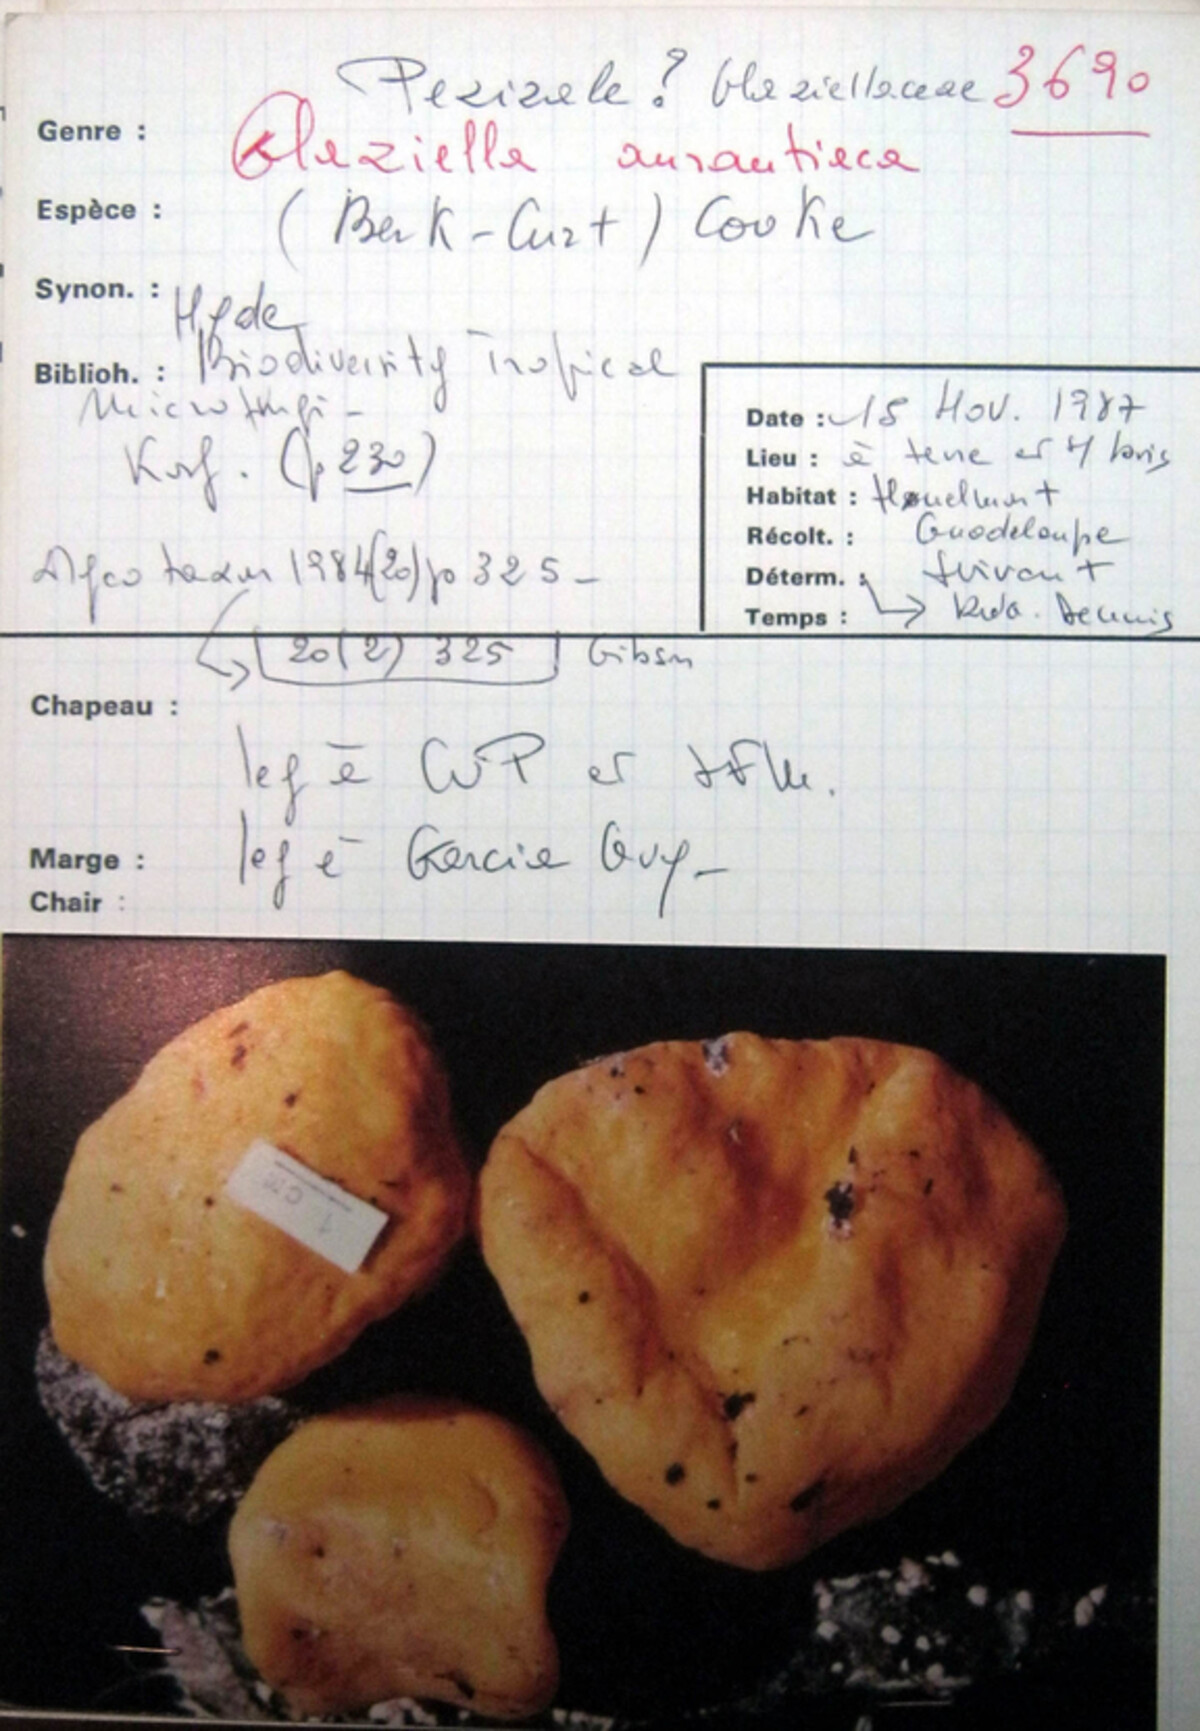 Pezizale? Glaziellaceae 3690
Genre : Glaziella aurantiaca
Espèce : (Berk-Curt) Cooke
Synon. : Hyde
Biblioh. : Biodiversity Tropical
Microfungi -
Korf. (p 230)
Mycotaxon 1984(20)p 325 -
20(2) 325 Gibson
Date : 15 Nov. 1987
Lieu : à terre et
Habitat : Houelmont
Récolt. : Guadeloupe
Déterm. :
Temps : Dennis
Chapeau :
leg à et
Marge : leg à Garcia Guy -
Chair :
1 CM